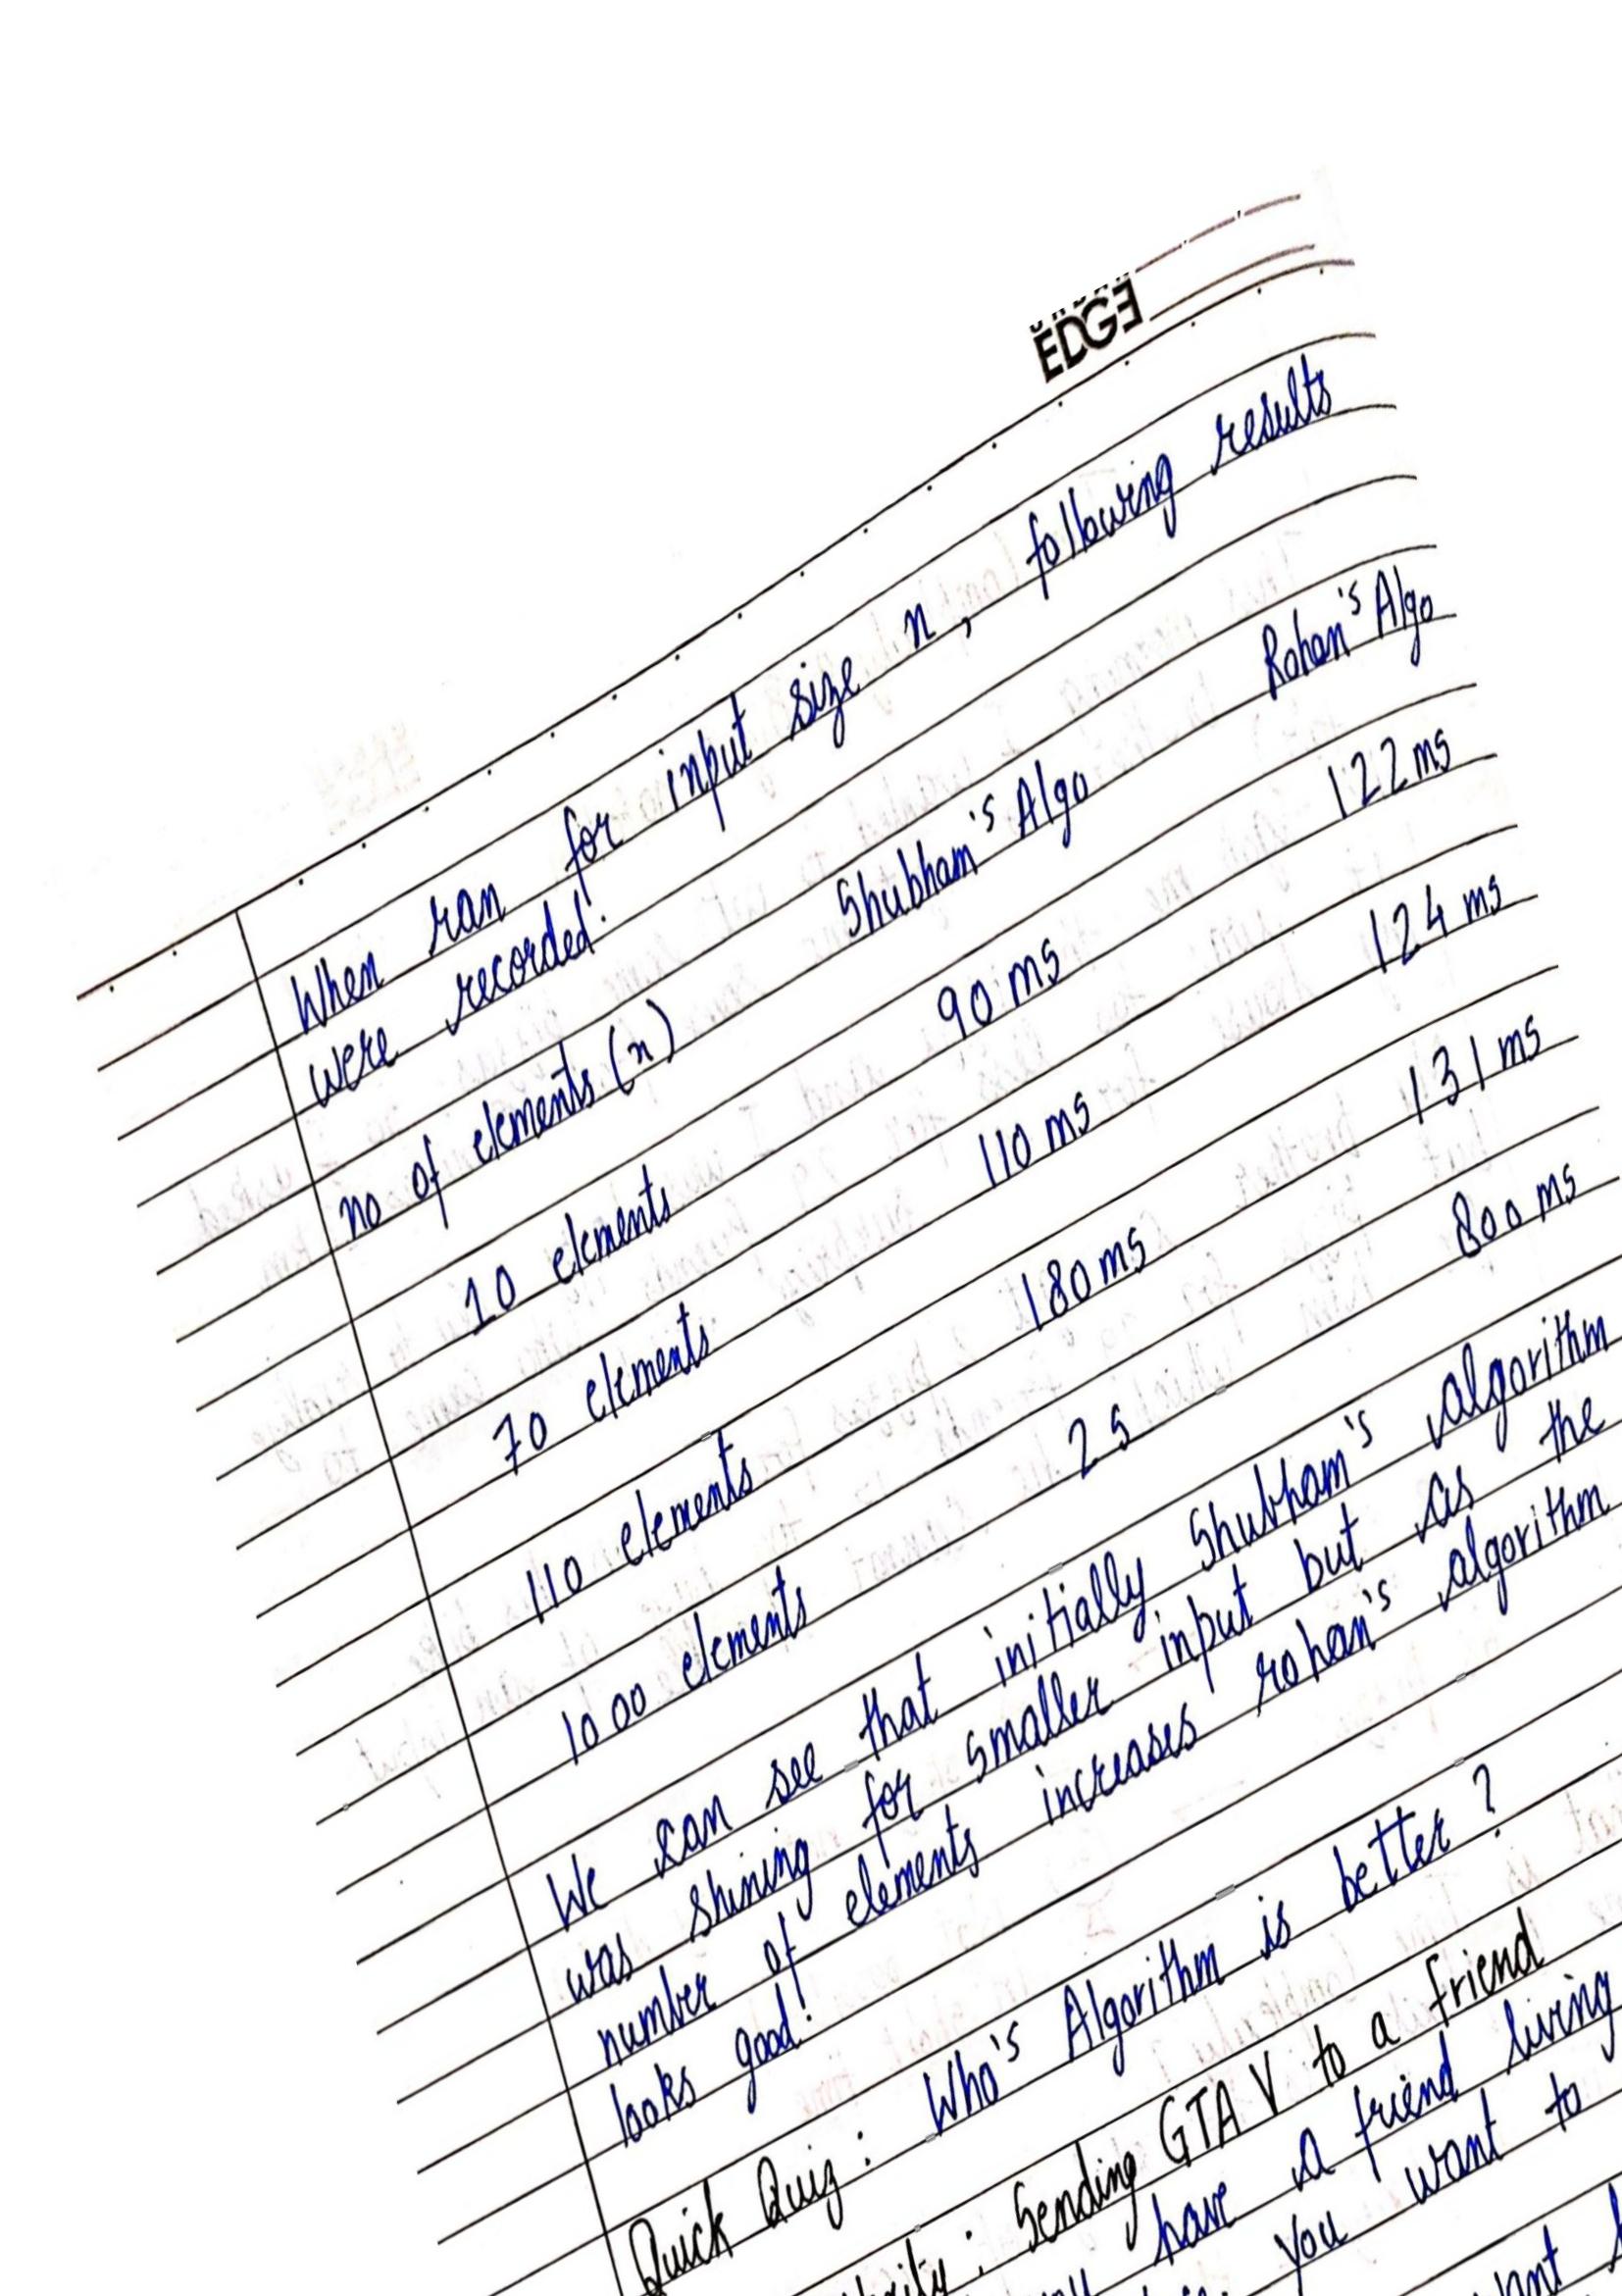 EDGE
When ran for input size n, following results
were recorded:
no of elements (n) Shubham's Algo Rohan's Algo
10 elements 90 ms 122 ms
70 elements 110 ms 124 ms
110 elements 180 ms 131 ms
1000 elements 2s 800 ms
We can see that initially Shubham's algorithm
was shining for smaller input but as the
number of elements increases rohan's algorithm
looks good!
Quick Quiz: Who's Algorithm is better?
: Sending GTA V to a friend
have a friend living
you want to